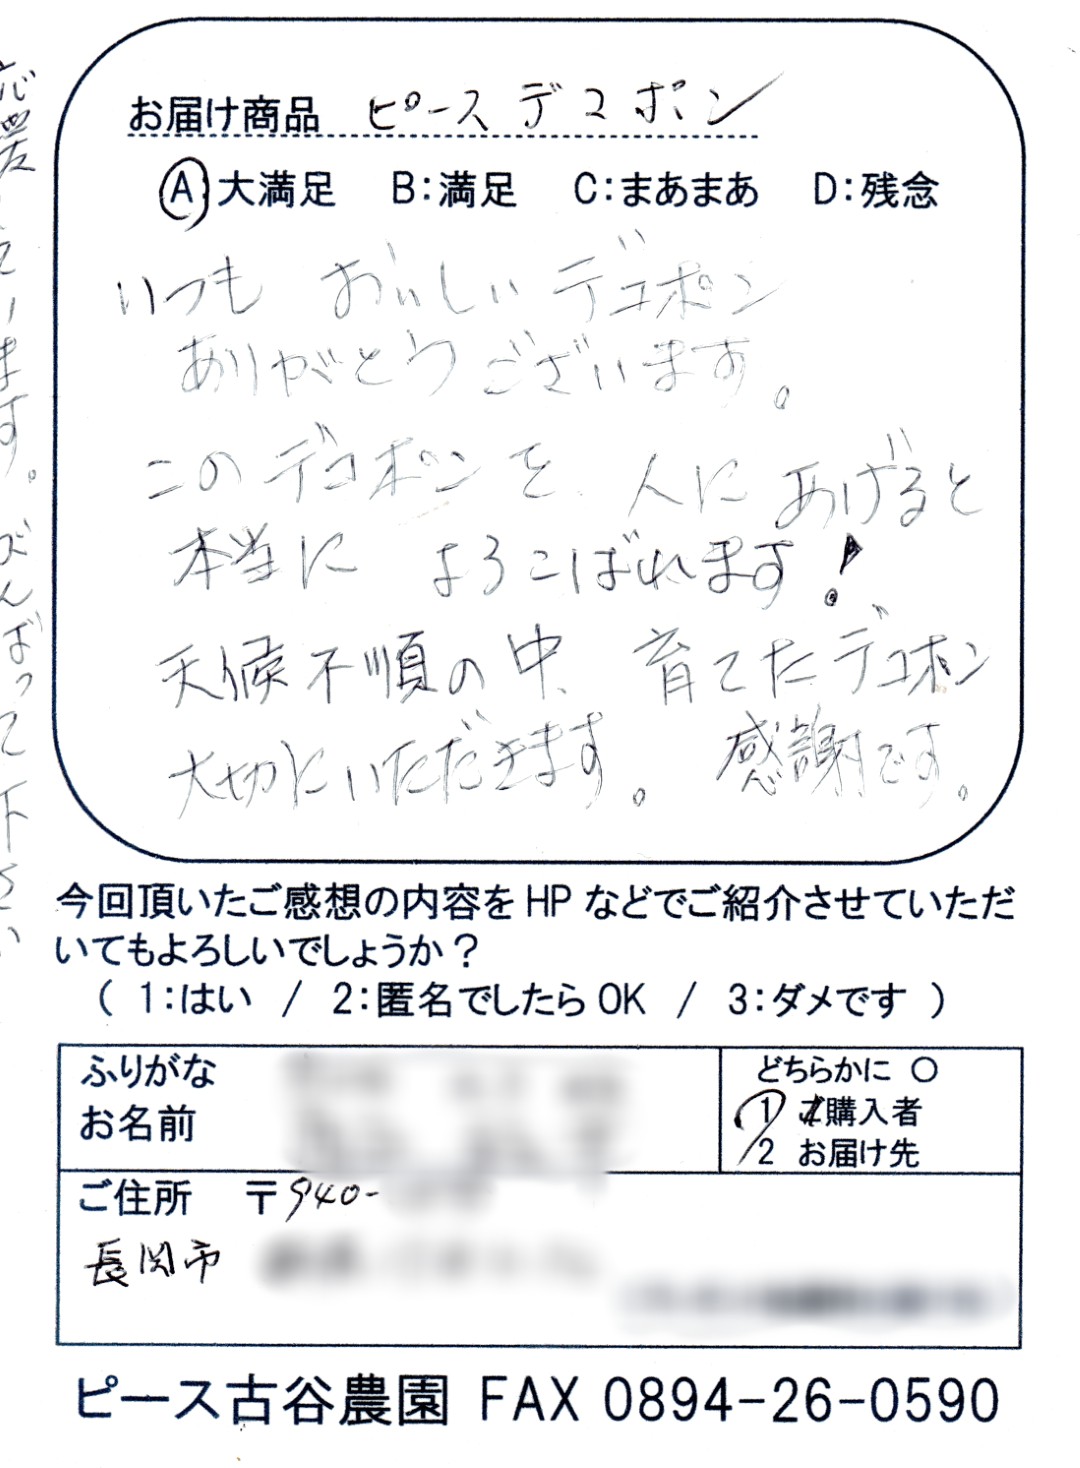 お届け商品 ピース デコポン
A 大満足 B:満足 C:まあまあ D:残念
いつも おいしい デコポン
ありがとうございます。
このデコポンを 人に あげると
本当に よろこばれます!
天候不順の中、育てたデコポン
大切にいただきます。 感謝です。
応援しています。がんばって下さい
今回頂いたご感想の内容を HP などでご紹介させていただ
いてもよろしいでしょうか?
( 1:はい / 2:匿名でしたら OK / 3:ダメです )
ふりがな
お名前
どちらかに ○
1 ご購入者
2 お届け先
ご住所 〒940-
長岡市
ピース古谷農園 FAX 0894-26-0590